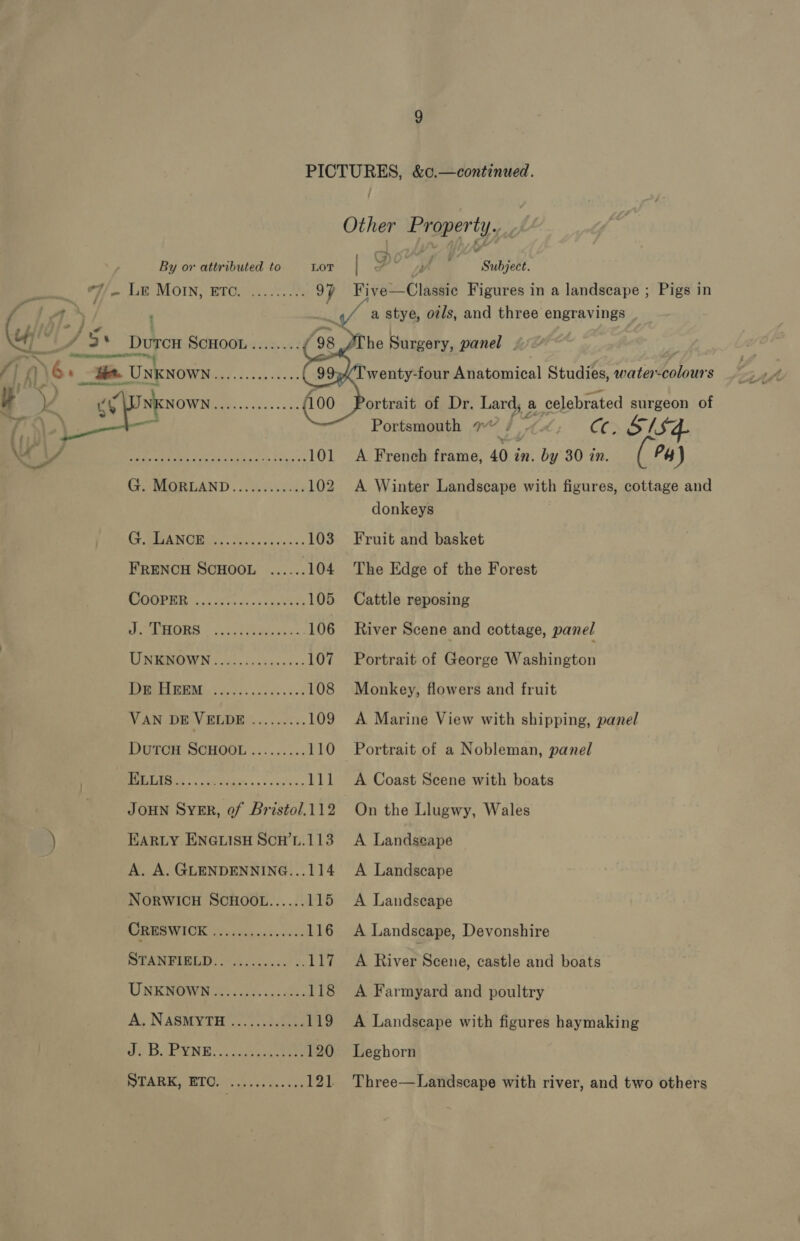 9
PICTURES, &c.—continued.
Other Property.
By or attributed to LOT Subject.
7/- LE MOIN, ETC. .......... 97 Five—Classic Figures in a landscape ; Pigs in
a stye, oils, and three engravings
5 DUTCH SCHOOL ........ 98 The Surgery, panel
6 UNKNOWN .............. 99 Twenty-four Anatomical Studies, water-colours
UNKNOWN .............. 100 Portrait of Dr. Lard, a celebrated surgeon of
Portsmouth CC. S/S4
.............................. 101 A French frame, 40 in. by 30 in. (P4)
G. MORLAND ............ 102 A Winter Landscape with figures, cottage and
donkeys
G. LANCE ................ 103 Fruit and basket
FRENCH SCHOOL ...... 104 The Edge of the Forest
COOPER .................. 105 Cattle reposing
J. THORS ................ 106 River Scene and cottage, panel
UNKNOWN .............. 107 Portrait of George Washington
DE HEEM ............... 108 Monkey, flowers and fruit
VAN DE VELDE ......... 109 A Marine View with shipping, panel
DUTCH SCHOOL ......... 110 Portrait of a Nobleman, panel
ELLIS ..................... 111 A Coast Scene with boats
JOHN SYER, of Bristol.112 On the Llugwy, Wales
EARLY ENGLISH SCH'L.113 A Landscape
A. A. GLENDENNING...114 A Landscape
NORWICH SCHOOL...... 115 A Landscape
CRESWICK ............... 116 A Landscape, Devonshire
STANFIELD.. ............ 117 A River Scene, castle and boats
UNKNOWN .............. 118 A Farmyard and poultry
A. NASMYTH ............ 119 A Landscape with figures haymaking
J. B. PYNE............... 120 Leghorn
STARK, ETC. ............ 121 Three—Landscape with river, and two others